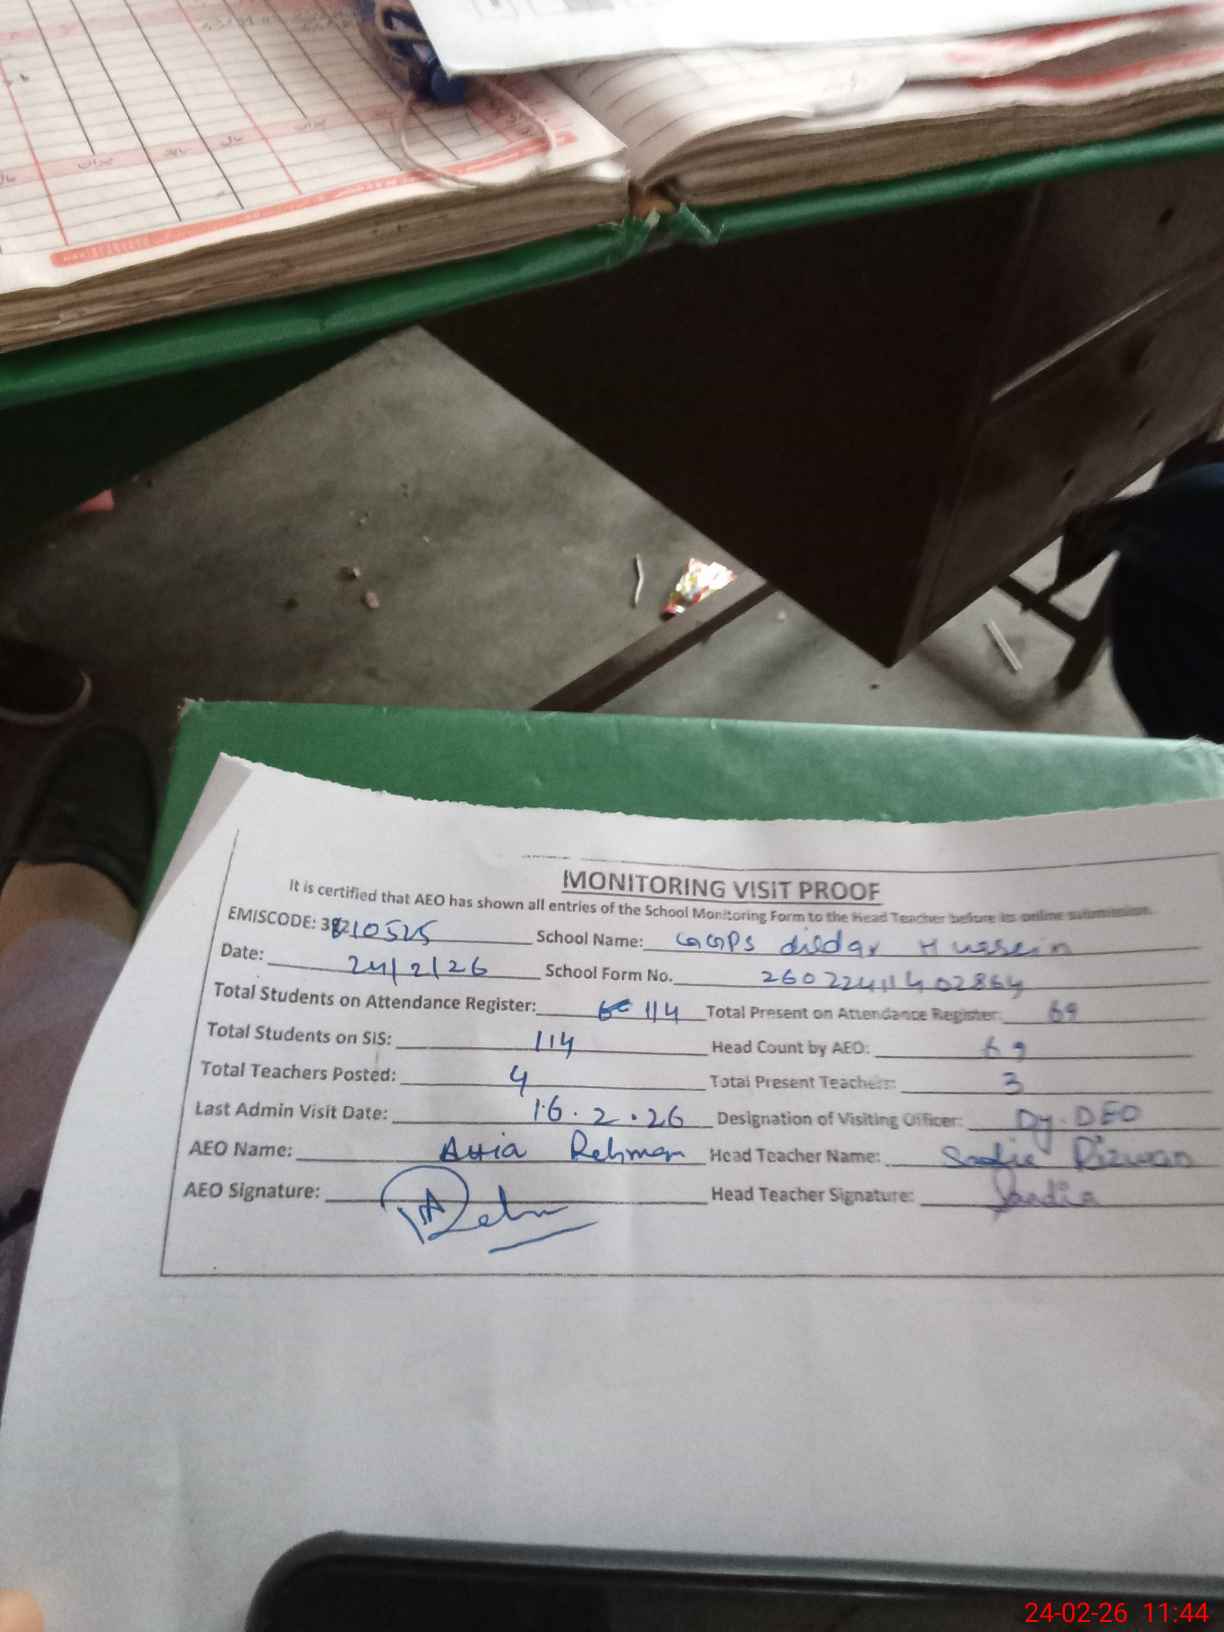 MONITORING VISIT PROOF
It is certified that AEO has shown all entries of the School Monitoring Form to the Head Teacher before its online submission.
EMISCODE: 38210525 School Name: GGPS dildar Hussein
Date: 24/2/26 School Form No. 26022411402864
Total Students on Attendance Register: 114 Total Present on Attendance Register: 69
Total Students on SIS: 114 Head Count by AEO: 69
Total Teachers Posted: 4 Total Present Teachers: 3
Last Admin Visit Date: 16.2.26 Designation of Visiting Officer: Dy. DEO
AEO Name: Attia Rehman Head Teacher Name: Rizwan
AEO Signature: Head Teacher Signature: Sandia
24-02-26 11:44